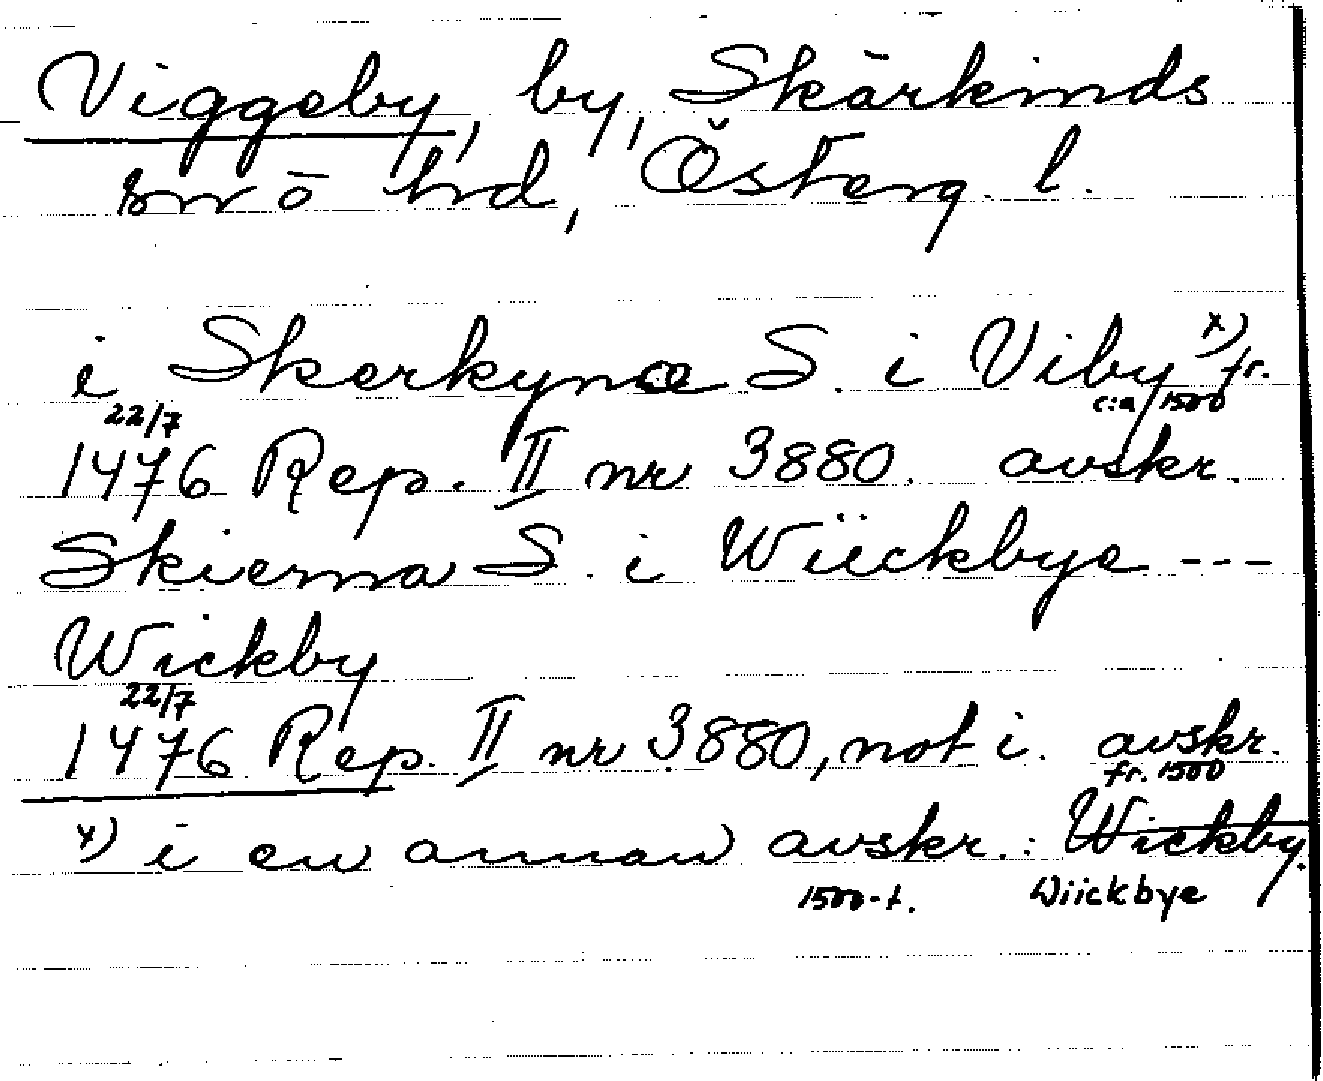 Viggeby, by, Skärkinds
sn o hd, Österg. l.
i Skerkynæ S. i Viby x) fr.
22/7 c:a 1500
1476 Rep. II nr 3880. avskr.
Skierna S. i Wiickbye ---
Wickby
22/7
1476 Rep. II nr 3880, not i. avskr.
fr. 1500
x) i en annan avskr.: Wickby.
1500-t. Wiickbye